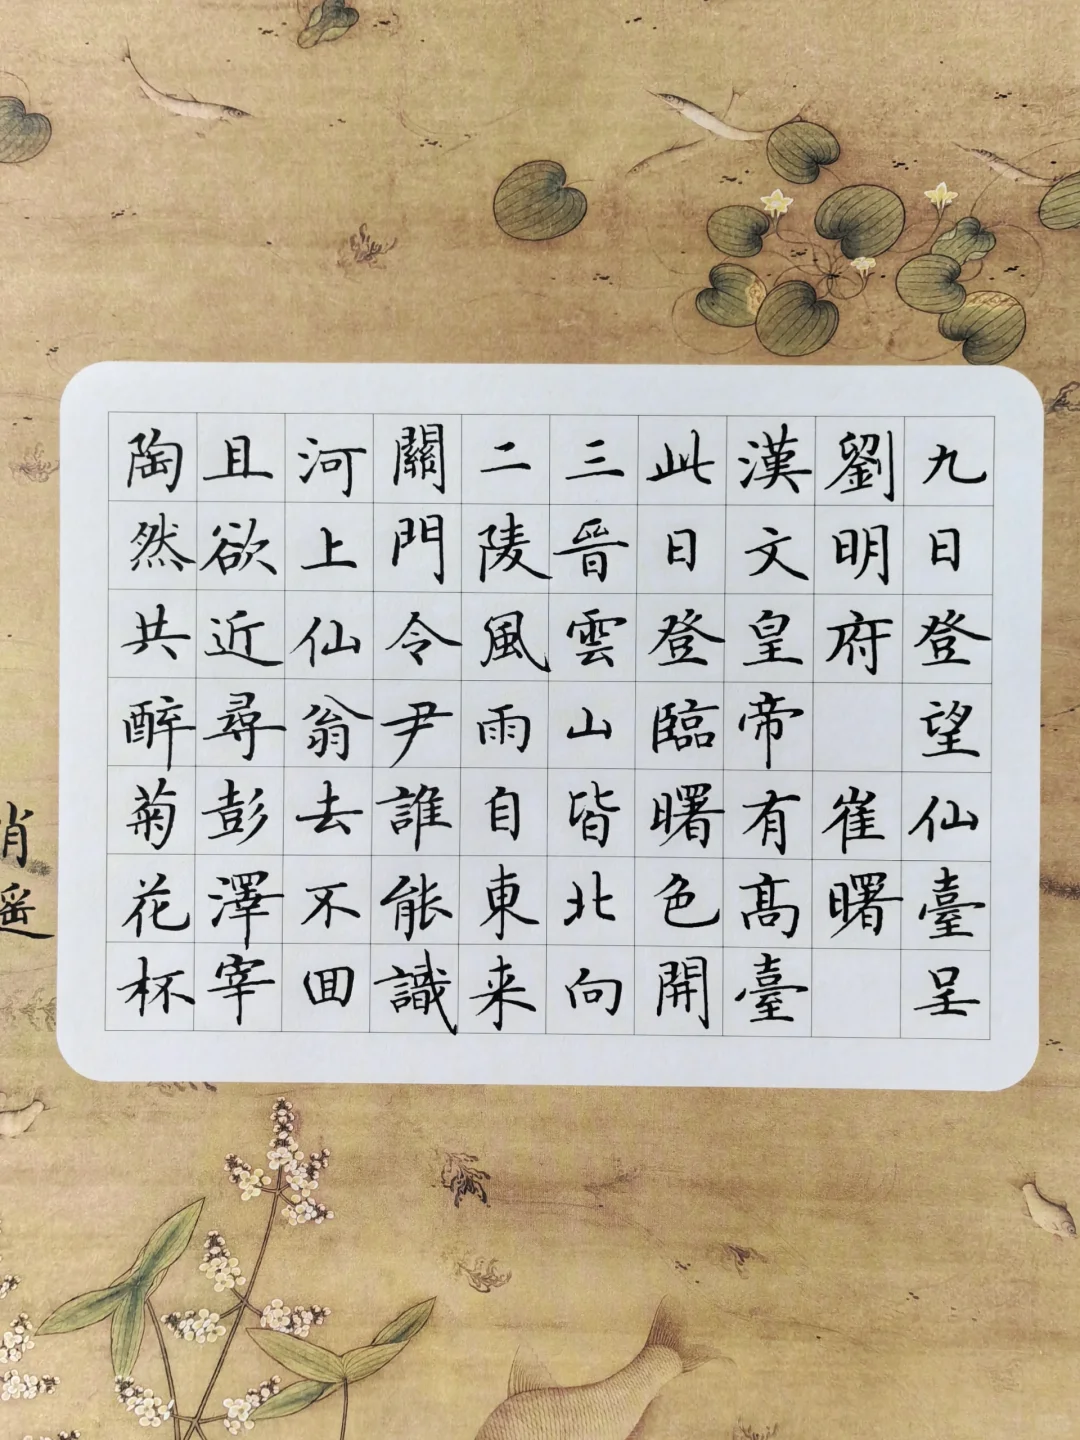 九日登望仙臺呈
劉明府 崔曙
漢文皇帝有髙臺
此日登臨曙色開
三晉雲山皆北向
二陵風雨自東来
關門令尹誰能識
河上仙翁去不回
且欲近尋彭澤宰
陶然共醉菊花杯